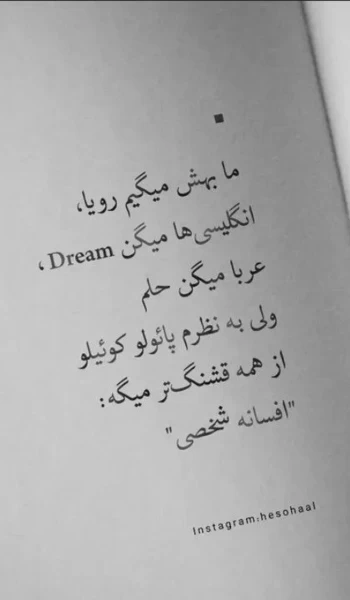 ما بهش میگیم رویا،
انگلیسی‌ها میگن Dream،
عربا میگن حلم
ولی به نظرم پائولو کوئیلو
از همه قشنگ‌تر میگه:
"افسانه شخصی"
Instagram:hesohaal